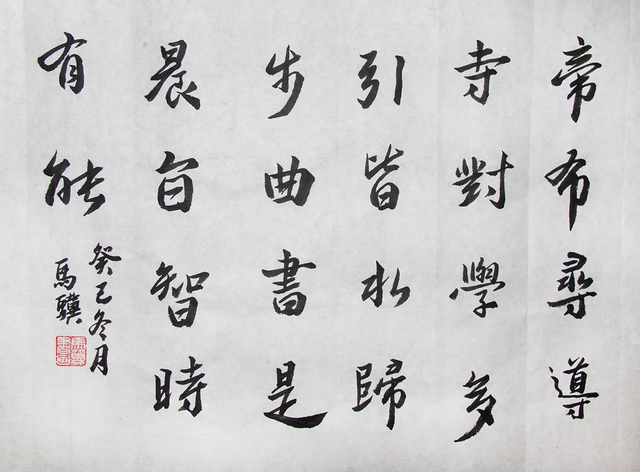 帝布尋導
寺對學多
引皆水歸
步曲書是
晨百智時
有能
癸巳冬月
馬驥